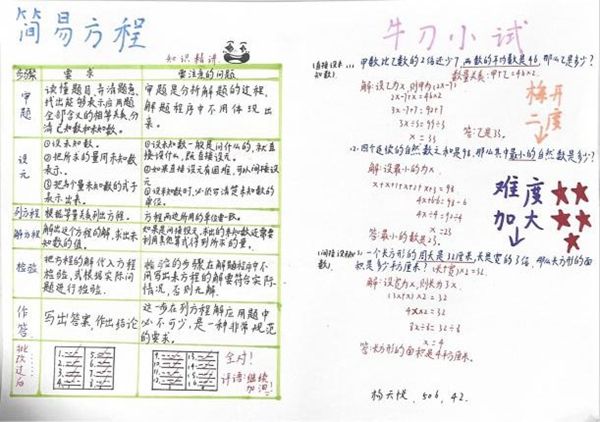 简易方程
知识精讲
步骤 要求 需注意的问题
审题
读懂题目,弄清题意,
找出能够表示应用题
全部含义的相等关系,分
清已知数和未知数。
审题是分析解题的过程,
解题程序中不用体现出
来。
设元
①设未知数。
②把所求的量用未知数
表示。
③把各个量未知数的式子
表示出来。
①设未知数一般是问什么的,就直
接设什么,既直接设元。
②如果直接设元有困难,可以间接设
元
③设未知数时,必须写清楚未知数的
单位。
列方程
根据等量关系列出方程。
方程两边所用的单位要一致。
解方程
解出这个方程的解,求出未
知数的值。
如果是间接设元,求出的未知数还需要
利用其他算式得到所求的量。
检验
把方程的解代入方程
检验,或根据实际问
题进行检验。
检验的步骤在解题程序中不
用写出来方程的解要符合实际
情况,否则无解。
作答
写出答案,作出结论
这一步在列方程解应用题中
必不可少,是一种非常规范
的要求。
批改过后
全对!
评语:继续
加油!
牛刀小试
(直接设未知数)
1、甲数比乙数的2倍还少7,两数的平均数是46,那么乙是多少?
数量关系:甲+乙=46×2
解:设乙为x,则甲为(2x-7)
2x-7+x=46×2
3x-7+7=92+7
3x÷3=99÷3
x=33
答:乙是33。
梅开二度
2、四个连续的自然数之和是98,那么其中最小的自然数是多少?
解:设最小的为x.
4x+6-6=98-6
4x÷4=92÷4
x=23
答:最小的数是23
难度
加大
(间接设未知数)
3、一个长方形的周长是32厘米,长是宽的3倍,那么长方形的面
积是多少平方厘米?
(长+宽)×2=32.
解:设宽为x,则长为3x.
(3x+x)×2=32
4x×2=32
8x÷8=32÷8
x=4
答:长方形的面积是4平方厘米。
506, 42.